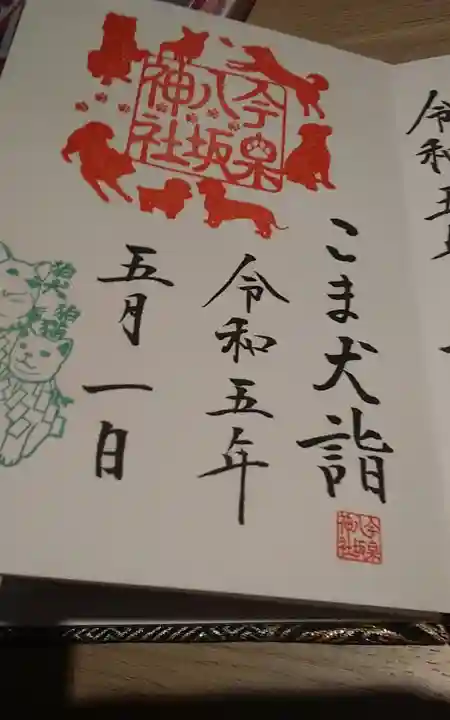 令和五年
今泉
八坂
神社
こま犬詣
令和五年
五月一日
今泉
八坂
神社
狛犬
狛猫